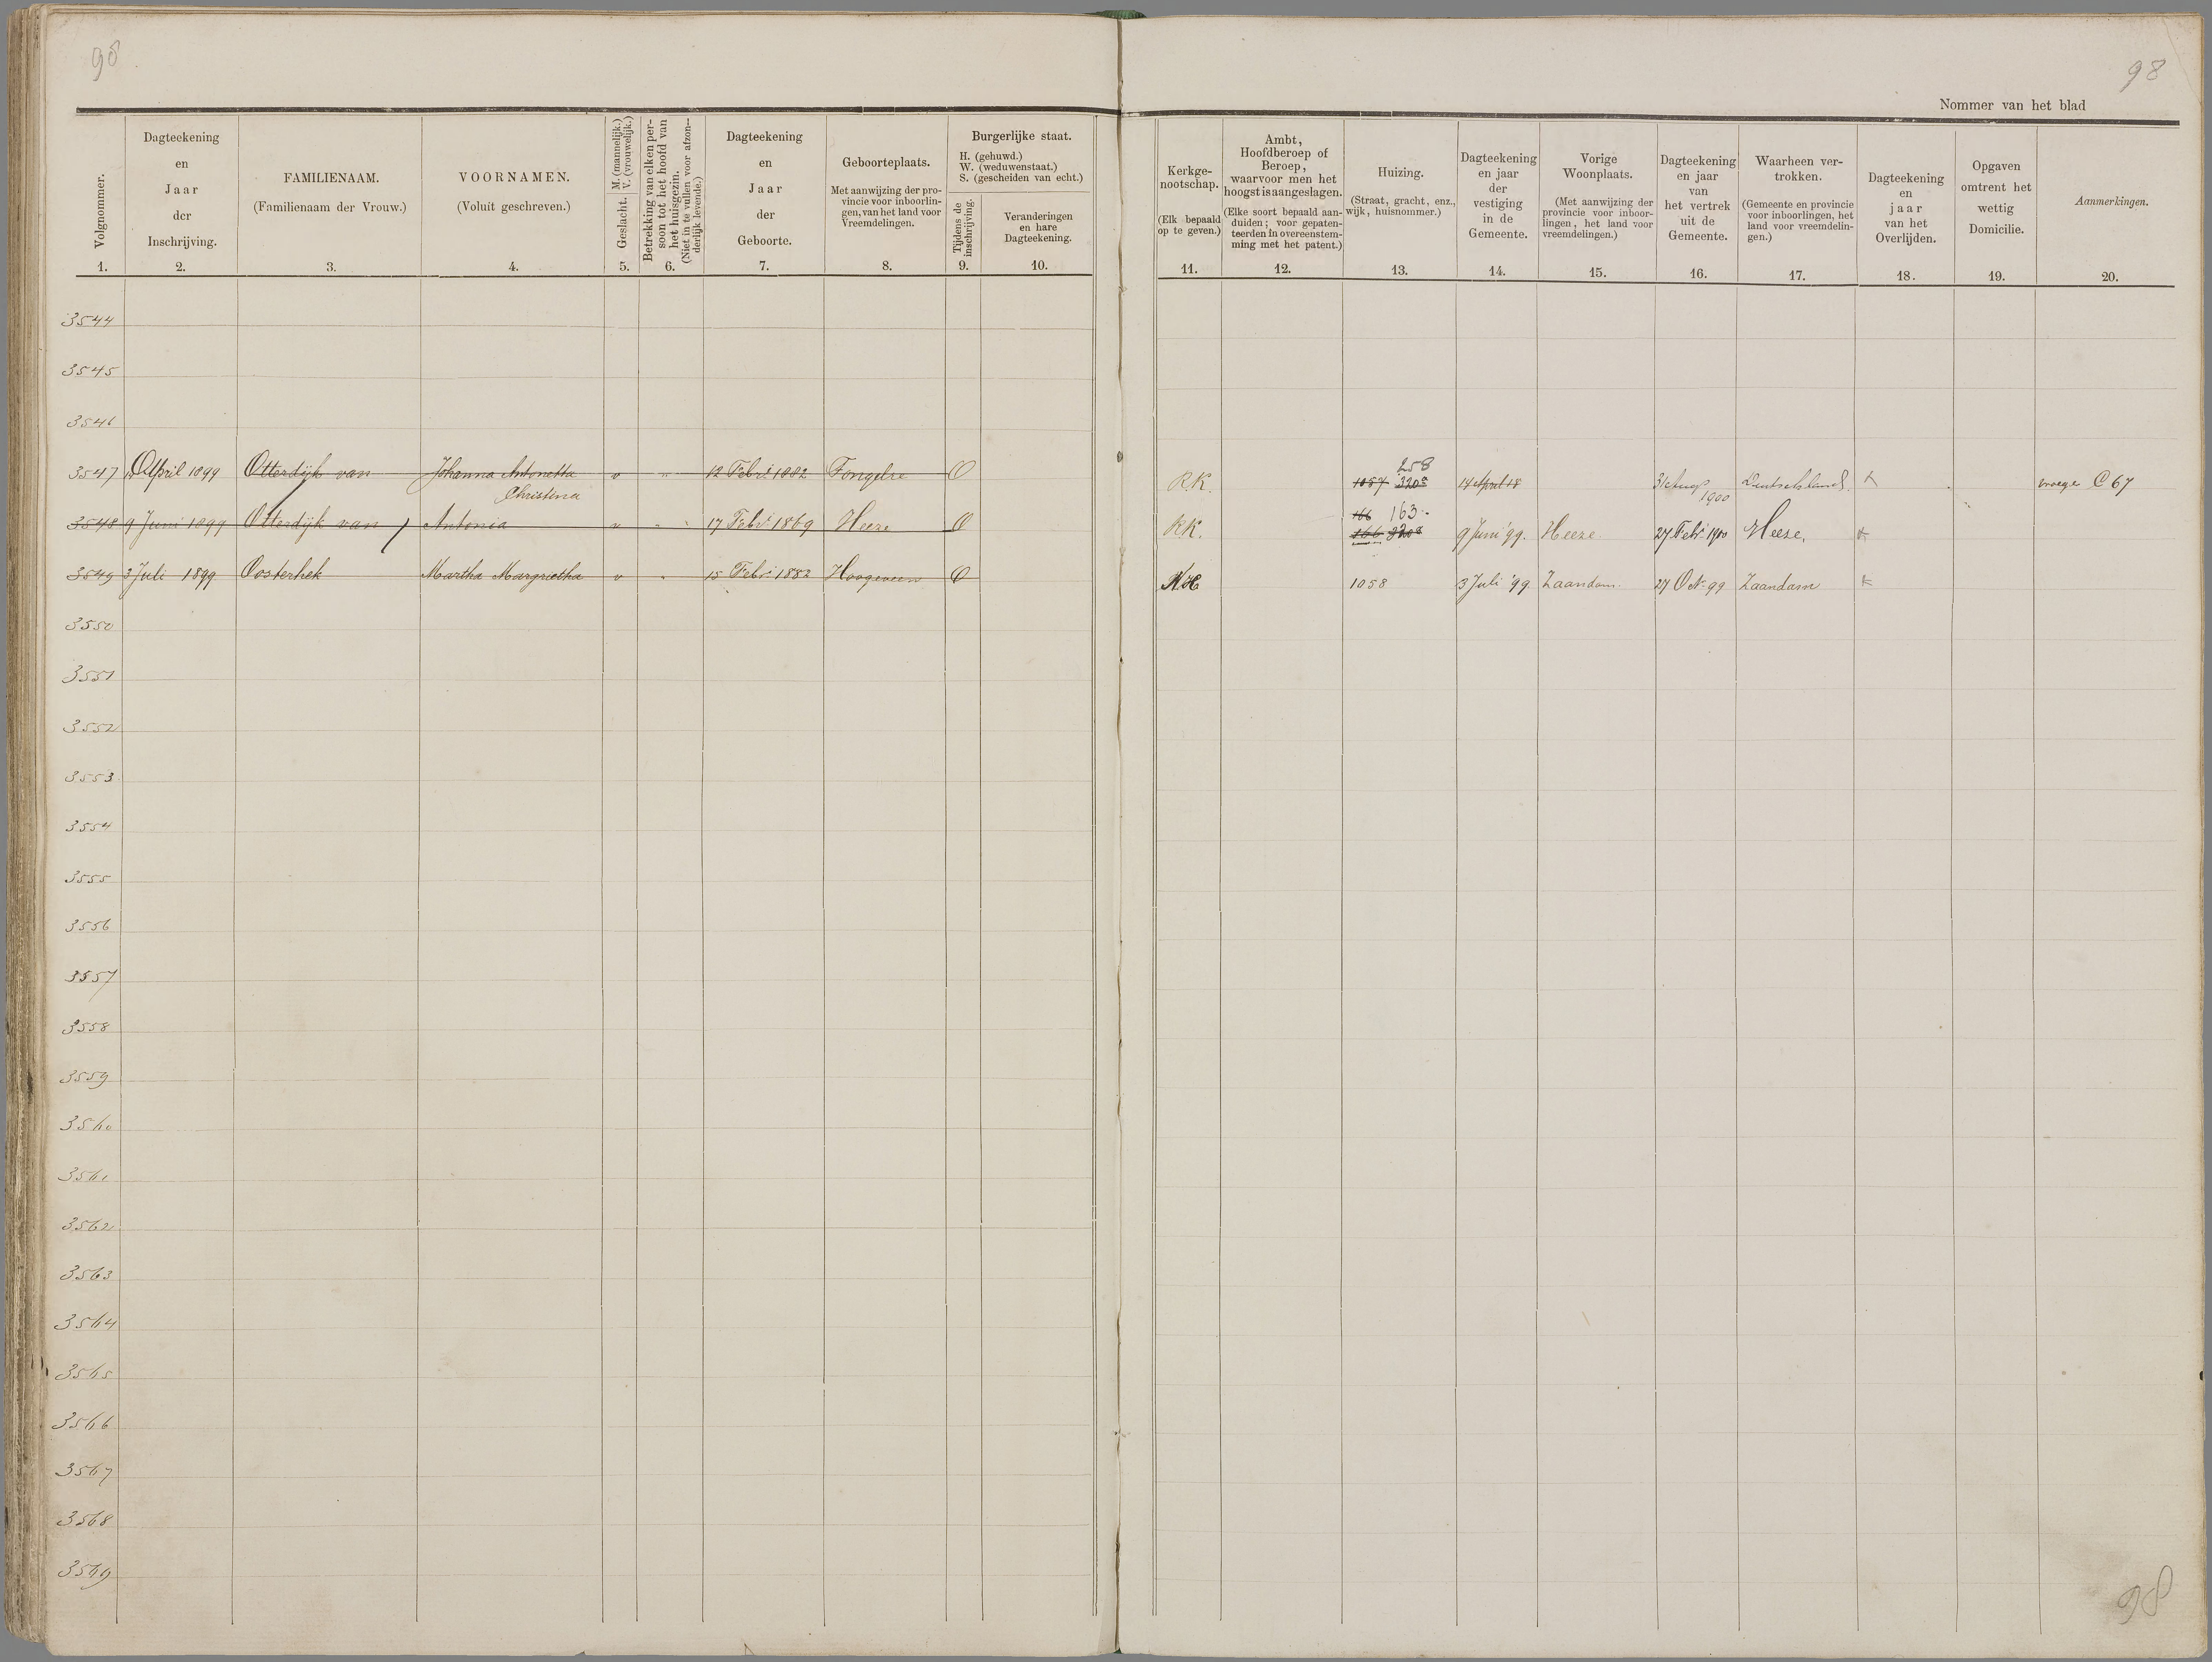 98
98
Nommer van het blad
Volgnommer.
1.
Dagteekening
en
Jaar
der
Inschrijving.
2.
FAMILIENAAM.
(Familienaam der Vrouw.)
3.
VOORNAMEN.
(Voluit geschreven.)
4.
Geslacht. M. (mannelijk.)
V. (vrouwelijk.)
5.
Betrekking van elken per-
soon tot het hoofd van
het huisgezin.
(Niet in te vullen voor afzon-
derlijk levende.)
6.
Dagteekening
en
Jaar
der
Geboorte.
7.
Geboorteplaats.
Met aanwijzing der pro-
vincie voor inboorlin-
gen, van het land voor
Vreemdelingen.
8.
Burgerlijke staat.
H. (gehuwd.)
W. (weduwenstaat.)
S. (gescheiden van echt.)
Tijdens de
inschrijving.
9.
Veranderingen
en hare
Dagteekening.
10.
Kerkge-
nootschap.
(Elk bepaald
op te geven.)
11.
Ambt,
Hoofdberoep of
Beroep,
waarvoor men het
hoogst is aangeslagen.
(Elke soort bepaald aan-
duiden; voor gepaten-
teerden in overeenstem-
ming met het patent.)
12.
Huizing.
(Straat, gracht, enz.,
wijk, huisnommer.)
13.
Dagteekening
en jaar
der
vestiging
in de
Gemeente.
14.
Vorige
Woonplaats.
(Met aanwijzing der
provincie voor inboor-
lingen, het land voor
vreemdelingen.)
15.
Dagteekening
en jaar
van
het vertrek
uit de
Gemeente.
16.
Waarheen ver-
trokken.
(Gemeente en provincie
voor inboorlingen, het
land voor vreemdelin-
gen.)
17.
Dagteekening
en
jaar
van het
Overlijden.
18.
Opgaven
omtrent het
wettig
Domicilie.
19.
Aanmerkingen.
20.
3544
3545
3546
258
3547 April 1899 Otterdijk van Johanna Antonetta v " 12 Febri 1882 Tongelre O R.K. 1057 320a 14 April 31 Aug Deutschland vroeger C 67
Christina 1900
166 163
3548 9 Juni 1899 Otterdijk van Antonia v " 17 Febri 1869 Heeze O R.K. 166 9 Juni '99. Heeze 27 Febr 1900 Heeze,
3549 3 Juli 1899 Oosterhek Martha Margrietha v " 15 Febri 1882 Hoogeveen O N.H 1058 3 Juli '99 Zaandam. 27 Oct 99 Zaandam
3550
3551
3552
3553
3554
3555
3556
3557
3558
3559
3560
3561
3562
3563
3564
3565
3566
3567
3568
3569
98